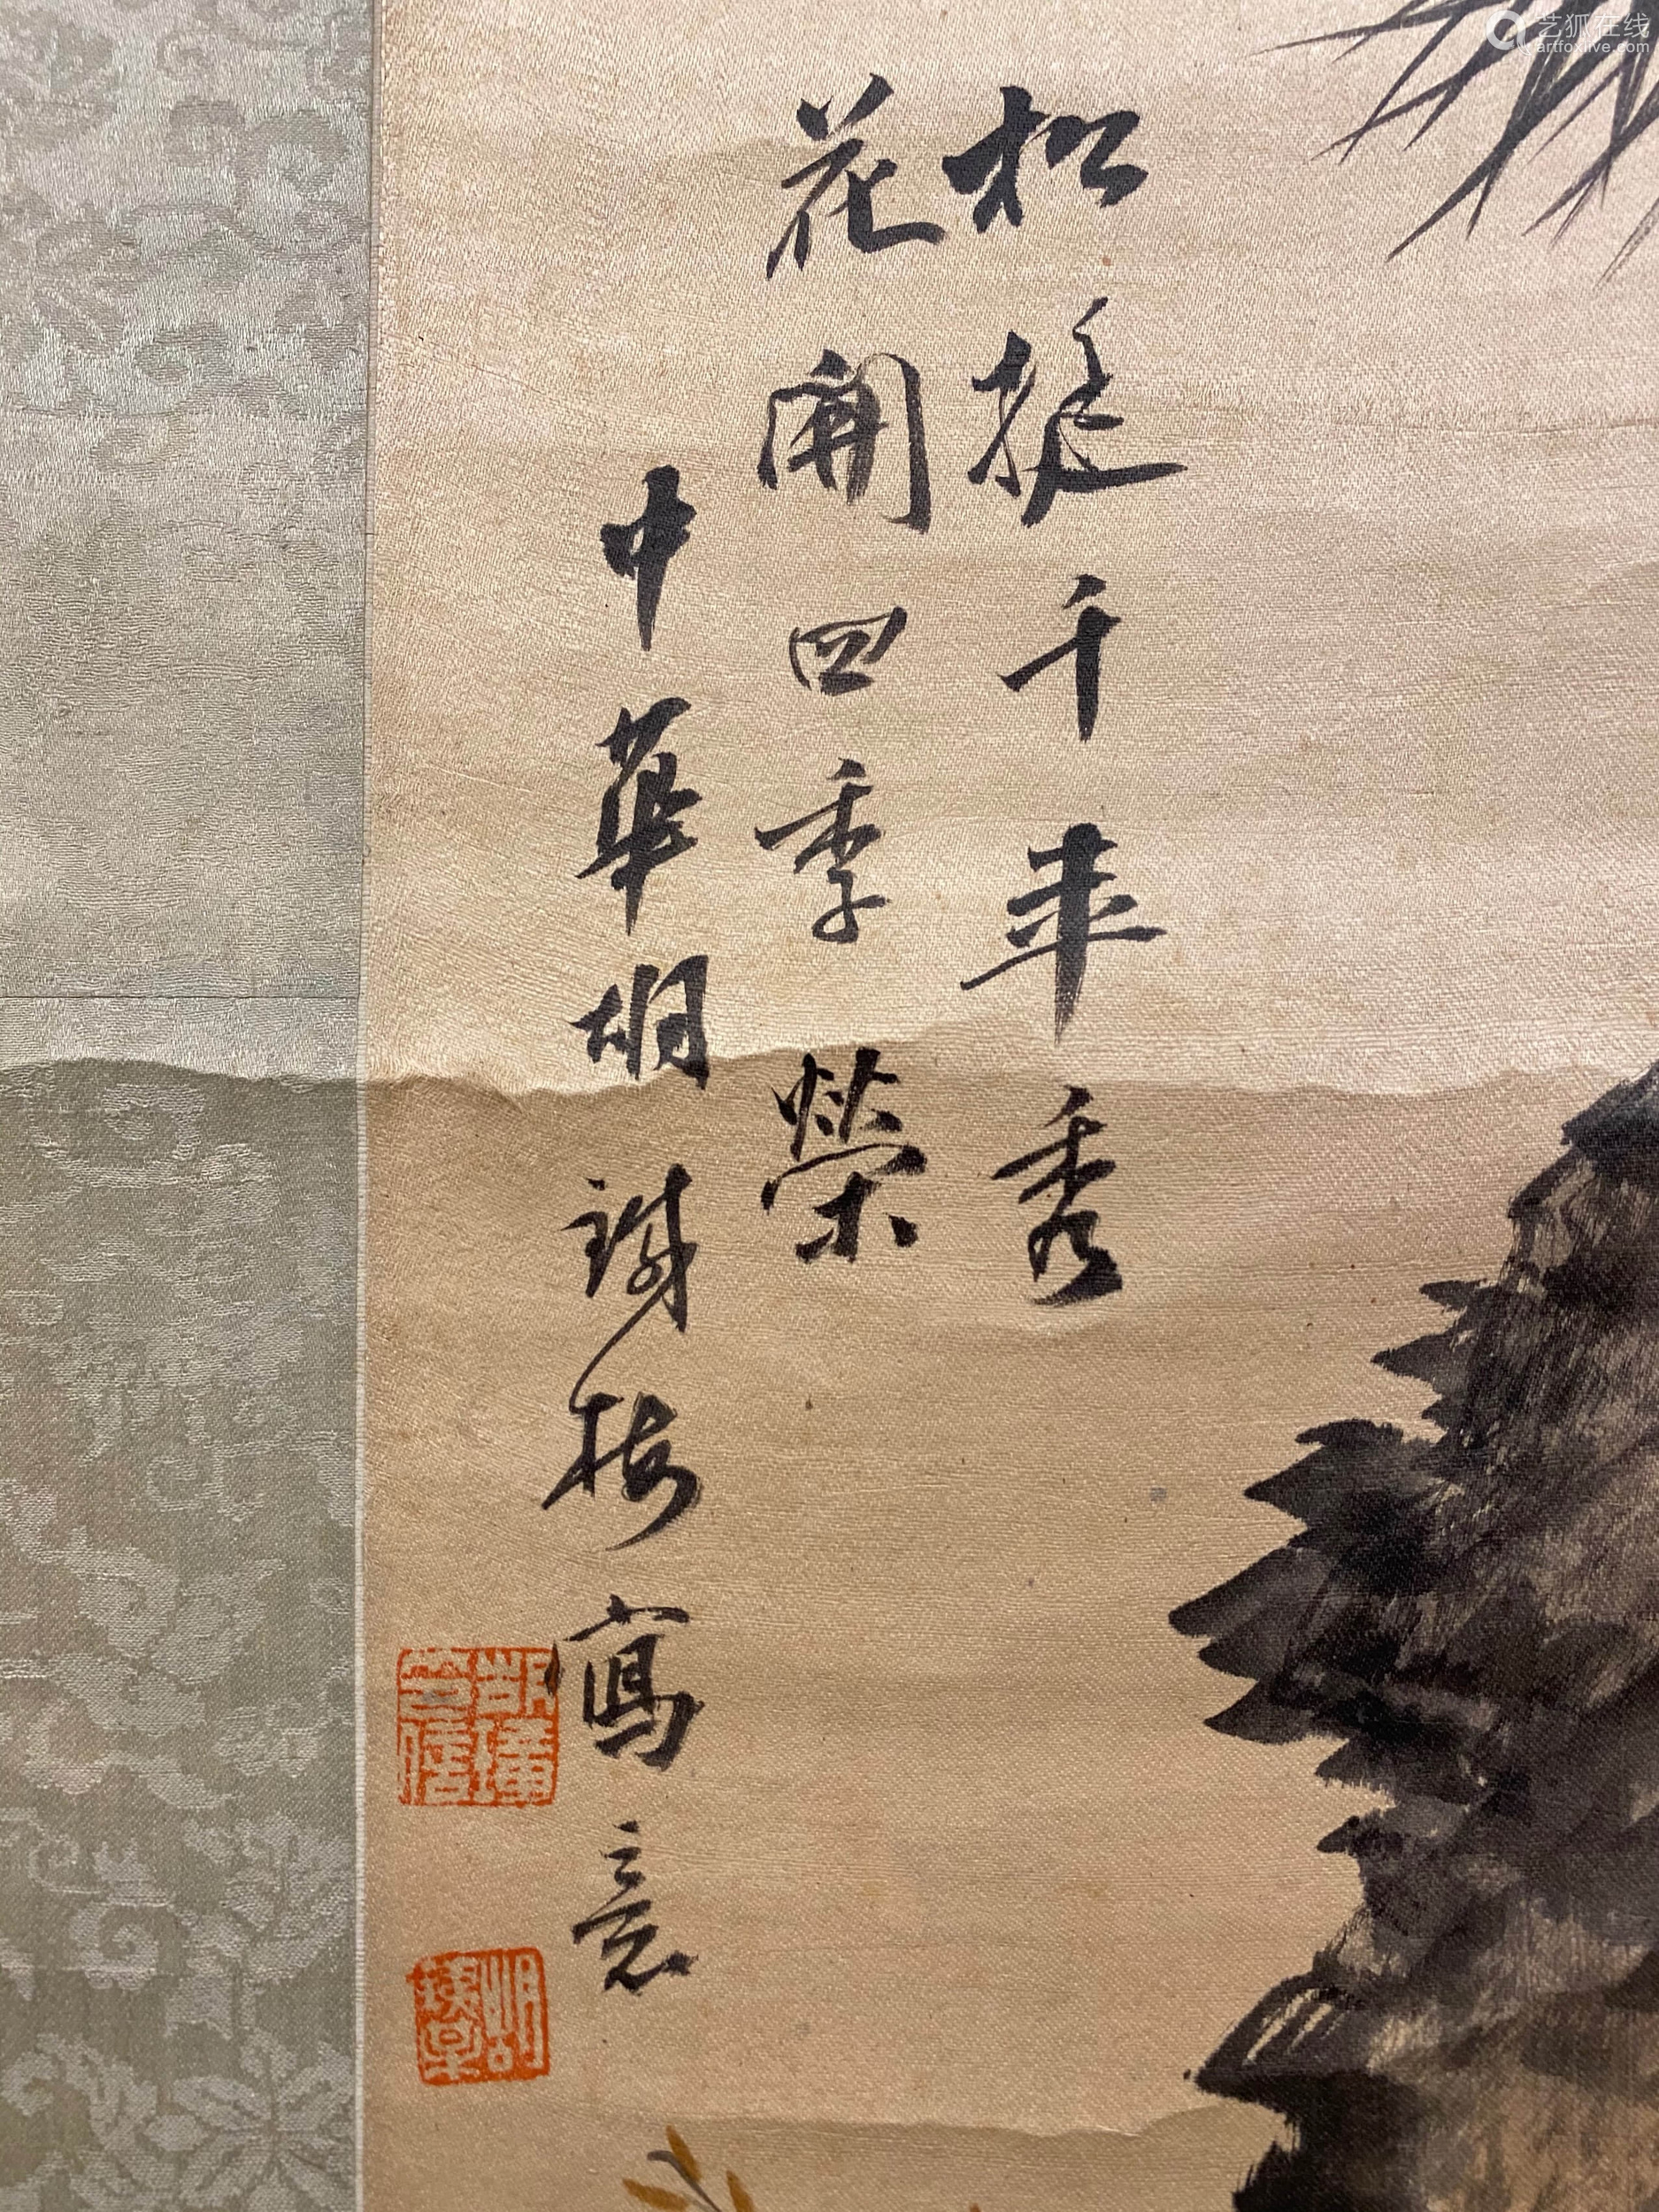 松挺千年秀
花開四季榮
中華胡鐵梅寫意
胡璋
言信
胡
鐵某
艺狐在线
artfoxlive.com